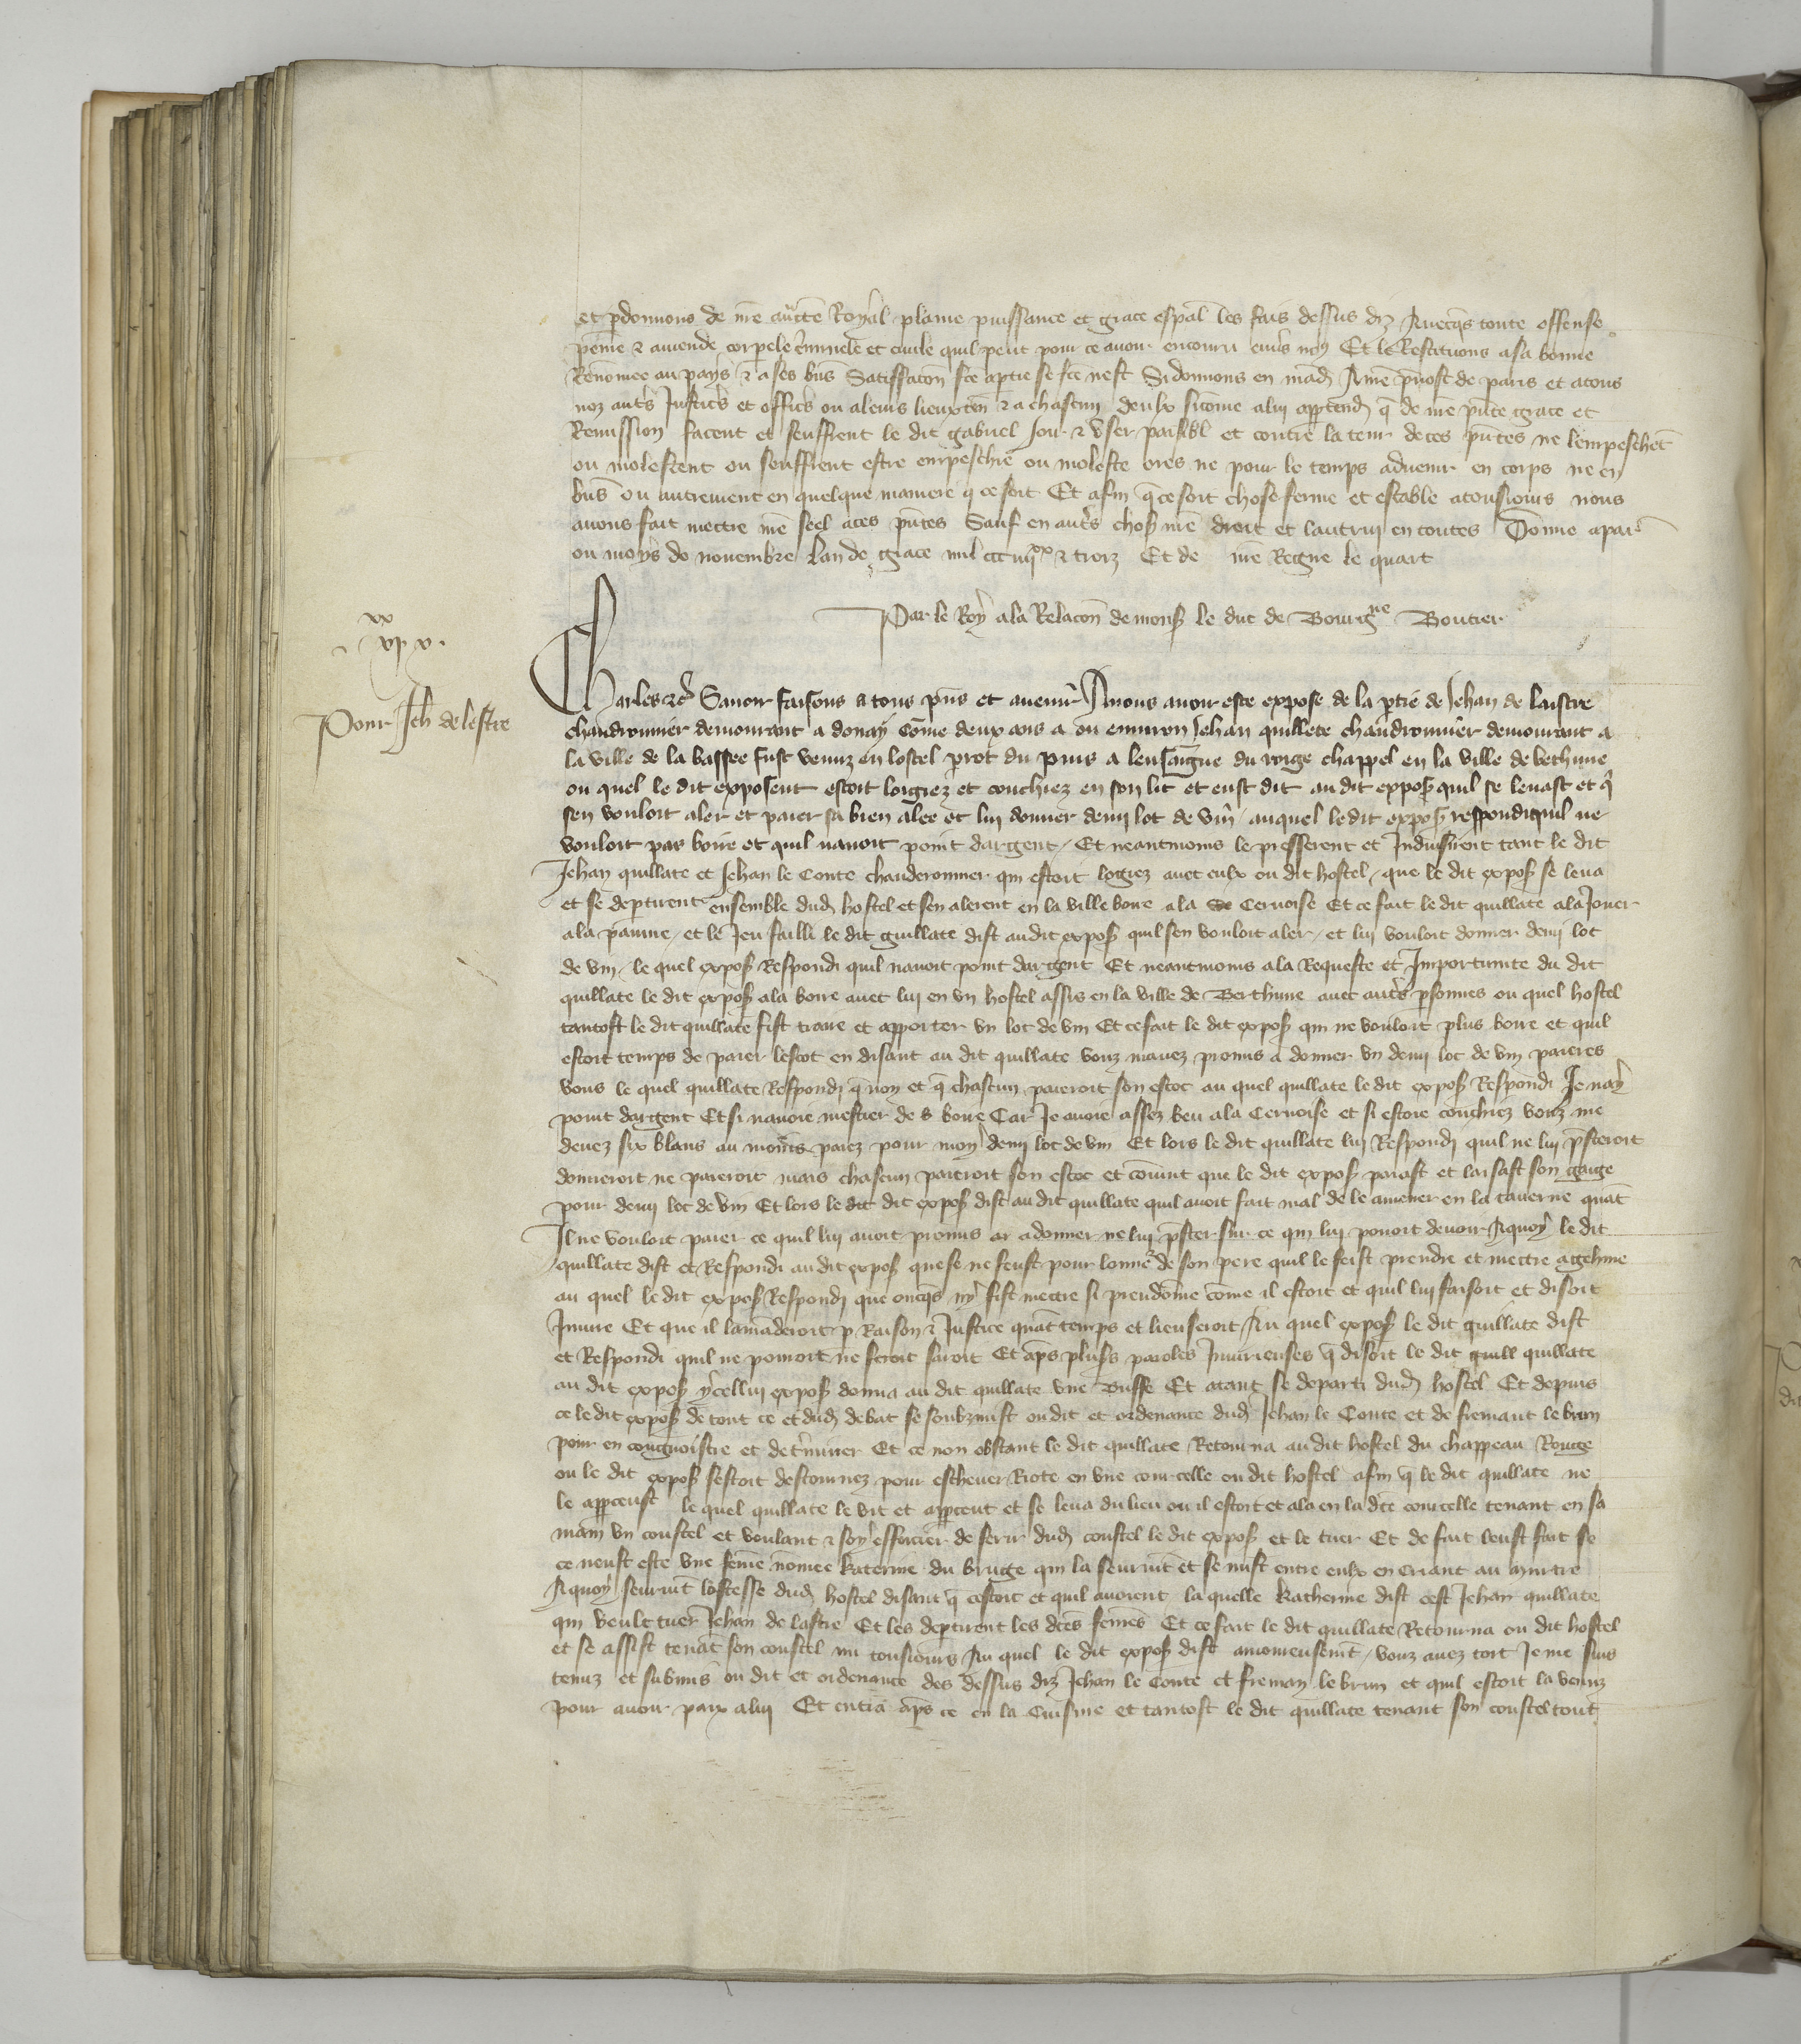 et pdonnons de nre auctte Royal plaine puissance et grace espal les fais dessus diz Avecqs toute offense
peine & amende corpele criminele et civile quil peut pour ce avoir encouru envs nous Et le Restituons a sa bonne
Renomee au pays & a ses biens Satiffacon fce a ptie se fce nest Si donnons en mand A nre pvost de paris et a tous
noz autrs Justicrs et officrs ou a leurs lieuxten & a chascun deulx si come a lui appartendr q de nre pnte grace et
Remission facent et seuffrent le dit gabriel Joir & user paisibl et contre la tenr de ces pntes ne lempeschent
ou molestent ou seuffrent estre empeschie ou moleste ores ne pour le temps advenir en corps ne en
biens ou autrement en quelque maniere q ce soit Et afin q ce soit chose ferme et estable a tousiours nous
avons fait mettre nre seel a ces pntes Sauf en autrs choses nre droit et lautrui en toutes Donne a paris
ou moys de novembre Lan de grace mil ccc iiijxx & troiz Et de nre Regne le quart
Par le Roy a la Relacon de mons le duc de Bourgne Boutier
Pour Jeh de lestre
Charles &c Savoir faisons a tous pns et avenir A nous avoir este expose de la ptie de Jehan de laistre
chaudronnier demourant a douay come deux ans a ou environ Jehan quillete chaudronnier demourant a
la ville de la bassee fust venuz en lostel prot du puis a lensaigne du roige chappel en la ville de bethune
ou quel le dit exposent estoit loigiez et couchiez en son lit et eust dit au dit expos quil se levast et q
sen vouloit aler et paier sa bien alee et lui donner demi lot de vin auquel le dit expos respondi quil ne
vouloit pas boire et quil navoit point dargent / Et neantmoins le presserent et Induisirent tant le dit
Jehan quillate et Jehan le Conte chauderonnier qui estoit logiez avec eulx ou dit hostel / que le dit expos se leva
et se deptirent ensemble dud hostel et sen alerent en la ville boire a la Cervoise Et ce fait le dit quillate ala Jouer
a la paume / et le Jeu failli le dit quillate dist au dit expos quil sen vouloit aler / et lui vouloit donner demi lot
de vin / le quel expos Respondi quil navoit point dargent Et neantmoins a la Requeste et Importunite du dit
quillate le dit expos ala boire avec lui en un hostel assis en la ville de Bethune avec autrs psonnes ou quel hostel
tantost le dit quillate fist traire et apporter un lot de vin Et ce fait le dit expos qui ne vouloit plus boire et quil
estoit temps de paier lescot en disant au dit quillate vouz mavez promis a donner un demi lot de vin paieres
vous le quel quillate Respondi q non et q chascun paieroit son escot au quel quillate le dit expos Respondi Je nay
point dargent Et si navoie mestier de boire Car Je avoie assez beu a la Cervoise et si estoie couchiez vouz me
devez six blans au moins paiez pour moy demi lot de vin Et lors le dit quillate lui Respondi quil ne lui psteroit
donneroit ne paieroit mais chascun paieroit son escot et convint que le dit expos paiast et laissast son gaige
pour demi lot de vin Et lors le dit dit expos dist au dit quillate quil avoit fait mal de le amener en la taverne quant
Il ne vouloit paier ce quil lui avoit promis a donner ne lui pster sur ce qui lui povoit devoir A quoy le dit
quillate dist et Respondi au dit expos que se ne feust pour lonneur de son pere quil le feist prendre et mettre a gehine
au quel le dit expos Respondi que oncqs ny fist mettre si preudome come il estoit et quil lui faisoit et disoit
Injure Et que il lamanderoit p Raison & Justice quant temps et lieu seroit Au quel expos le dit quillate dist
et Respondi quil ne pourroit ne seroit savoit Et aps plusrs paroles Injurieuses q disoit le dit quill quillate
au dit expos ycellui expos donna au dit quillate une Buffe Et atant se departi dud hostel Et depuis
ce le dit expos de tout ce et dud debat se soubzmist ou dit et ordenance dud Jehan le Conte et de fremant le brun
pour en congnoistre et detminer Et ce non obstant le dit quillate Retourna au dit hostel du chappeau Rouge
ou le dit expos sestoit destournez pour eschever Riote en une courcelle ou dit hostel afin q le dit quillate ne
le appceust le quel quillate le vit et appceut et se leva du lieu ou il estoit et ala en la dte courcelle tenant en sa
main un coustel et voulant & soy efforcier de ferir dud coustel le dit expos et le tuer Et de fait leust fait se
ce neust este une feme nomee katerine du bruge qui la seurvint et se mist entre eulx en criant au murtre
A quoy seurvint lostesse dud hostel disant q cestoit et quil avoient la quelle katherine dist cest Jehan quillate
qui veult tuer Jehan de lastre Et les deptirent les dtes femes Et ce fait le dit quillate Retourna ou dit hostel
et se assist tenant son coustel nu tousiours Au quel le dit expos dist amoureusemt / vouz avez tort Je me suis
tenuz et submis ou dit et ordenance des dessus diz Jehan le Conte et freman le brun et quil estoit la venuz
pour avoir paix a lui Et entra aps ce en la Cuisine et tantost le dit quillate tenant son coustel tout